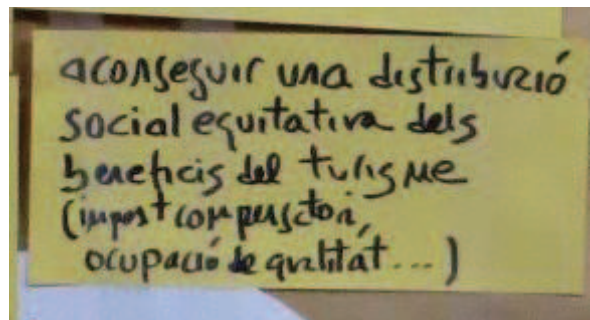 aconseguir una distribució
social equitativa dels
beneficis del turisme
(impost compensatori,
ocupació de qualitat...)